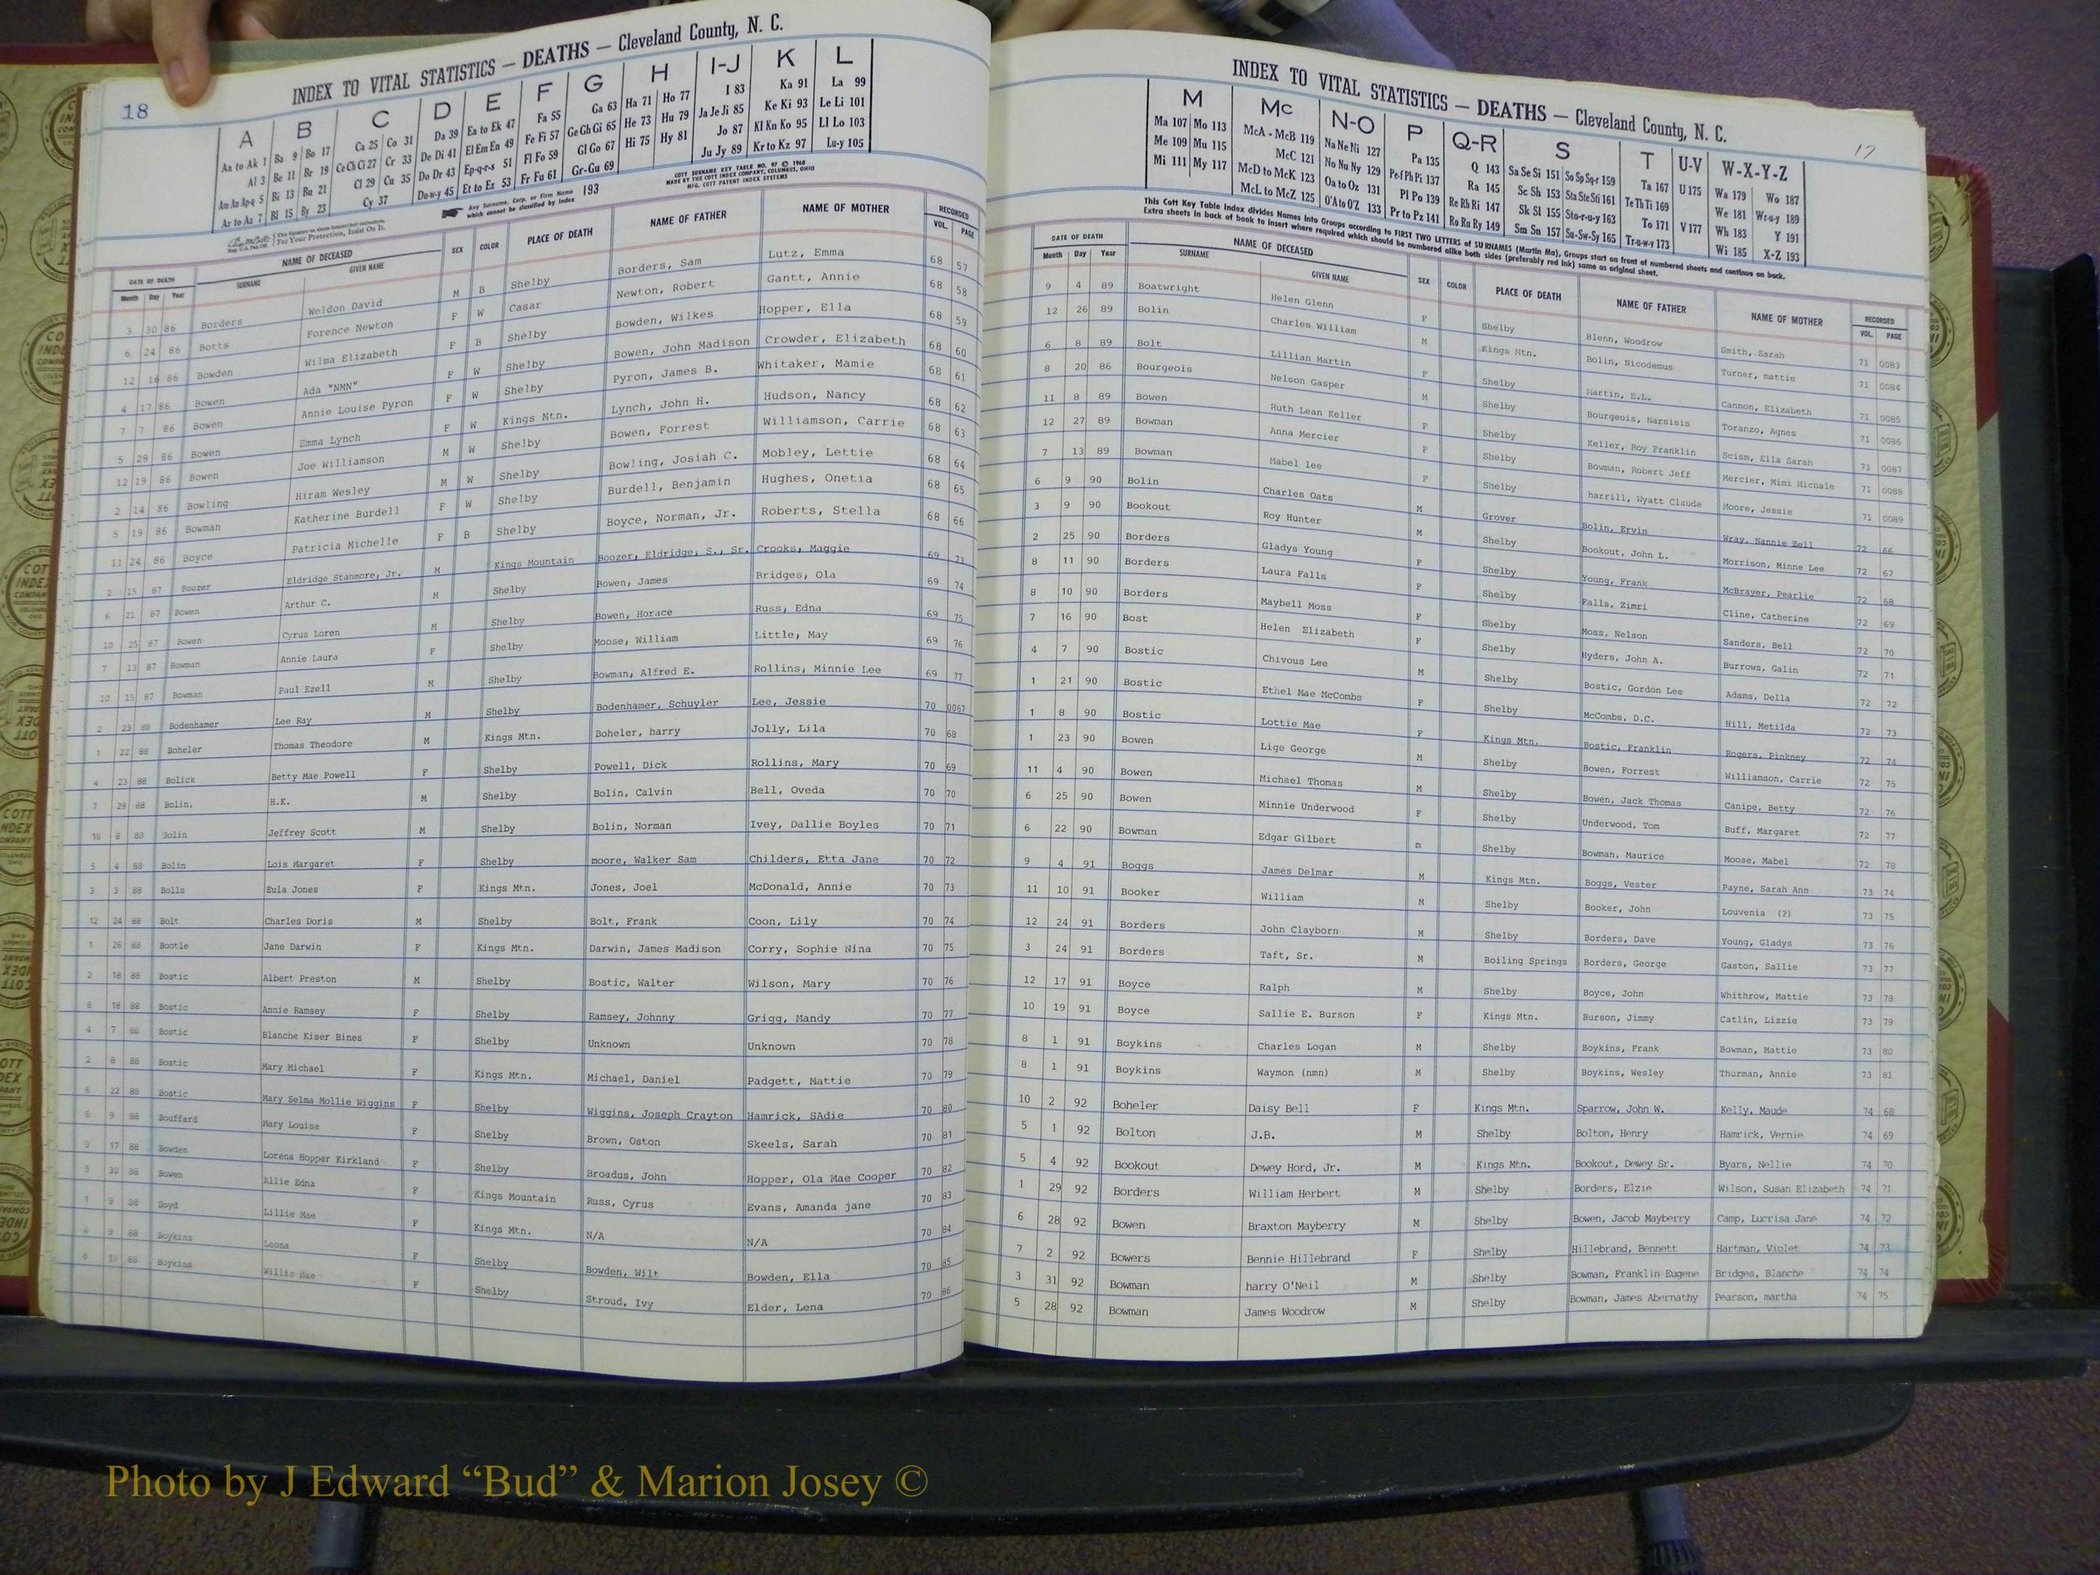 18
INDEX TO VITAL STATISTICS — DEATHS — Cleveland County, N. C.
A B C D E F G H I-J K L
Aa to Ak 1 Ba 9 Bo 17 Ca 25 Co 31 Da 39 Ea to Ek 47 Fa 55 Ga 63 Ha 71 Ho 77 I 83 Ka 91 La 99
Al 3 Be 11 Br 19 Ce Ch Ci 27 Cr 33 De Di 41 El Em En 49 Fe Fi 57 Ge Gh Gi 65 He 73 Hu 79 Ja Je Ji 85 Ke Ki 93 Le Li 101
Am An Ap-q 5 Bi 13 Bu 21 Cl 29 Cu 35 Do Dr 43 Ep-q-r-s 51 Fl Fo 59 Gl Go 67 Hi 75 Hy 81 Jo 87 Kl Kn Ko 95 Ll Lo 103
Ar to Az 7 Bl 15 By 23 Cy 37 Du-w-y 45 Et to Ez 53 Fr Fu 61 Gr-Gu 69 Ju Jy 89 Kr to Kz 97 Lu-y 105
Any Surname, Corp. or Firm Name which cannot be classified by Index 193
COTT SURNAME KEY TABLE NO. 97 © 1960
MADE BY THE COTT INDEX COMPANY, COLUMBUS, OHIO
MFG. COTT PATENT INDEX SYSTEMS
For Your Protection, Insist On It.
DATE OF DEATH NAME OF DECEASED SEX COLOR PLACE OF DEATH NAME OF FATHER NAME OF MOTHER RECORDED
Month Day Year SURNAME GIVEN NAME VOL. PAGE
3 30 86 Borders Weldon David M B Shelby Borders, Sam Lutz, Emma 68 57
6 24 86 Botts Forence Newton F W Casar Newton, Robert Gantt, Annie 68 58
12 16 86 Bowden Wilma Elizabeth F B Shelby Bowden, Wilkes Hopper, Ella 68 59
4 17 86 Bowen Ada "NMN" F W Shelby Bowen, John Madison Crowder, Elizabeth 68 60
7 7 86 Bowen Annie Louise Pyron F W Shelby Pyron, James B. Whitaker, Mamie 68 61
5 29 86 Bowen Emma Lynch F W Kings Mtn. Lynch, John H. Hudson, Nancy 68 62
12 19 86 Bowen Joe Williamson M W Shelby Bowen, Forrest Williamson, Carrie 68 63
2 14 86 Bowling Hiram Wesley M W Shelby Bowling, Josiah C. Mobley, Lettie 68 64
5 19 86 Bowman Katherine Burdell F W Shelby Burdell, Benjamin Hughes, Onetia 68 65
11 24 86 Boyce Patricia Michelle F B Shelby Boyce, Norman, Jr. Roberts, Stella 68 66
2 15 87 Boozer Eldridge Stanmore, Jr. M Kings Mountain Boozer, Eldridge, S., Sr. Crooks, Maggie 69 73
6 21 87 Bowen Arthur C. M Shelby Bowen, James Bridges, Ola 69 74
10 25 87 Bowen Cyrus Loren M Shelby Bowen, Horace Russ, Edna 69 75
7 13 87 Bowman Annie Laura F Shelby Moose, William Little, May 69 76
10 15 87 Bowman Paul Ezell M Shelby Bowman, Alfred E. Rollins, Minnie Lee 69 77
2 23 88 Bodenhamer Lee Ray M Shelby Bodenhamer, Schuyler Lee, Jessie 70 0067
1 22 88 Boheler Thomas Theodore M Kings Mtn. Boheler, harry Jolly, Lila 70 68
4 23 88 Bolick Betty Mae Powell F Shelby Powell, Dick Rollins, Mary 70 69
7 29 88 Bolin, H.K. M Shelby Bolin, Calvin Bell, Oveda 70 70
10 8 88 Bolin Jeffrey Scott M Shelby Bolin, Norman Ivey, Dallie Boyles 70 71
5 4 88 Bolin Lois Margaret F Shelby moore, Walker Sam Childers, Etta Jane 70 72
3 3 88 Bolls Eula Jones F Kings Mtn. Jones, Joel McDonald, Annie 70 73
12 24 88 Bolt Charles Doris M Shelby Bolt, Frank Coon, Lily 70 74
1 26 88 Bootle Jane Darwin F Kings Mtn. Darwin, James Madison Corry, Sophie Nina 70 75
2 18 88 Bostic Albert Preston M Shelby Bostic, Walter Wilson, Mary 70 76
8 18 88 Bostic Annie Ramsey F Shelby Ramsey, Johnny Grigg, Mandy 70 77
4 7 88 Bostic Blanche Kiser Bines F Shelby Unknown Unknown 70 78
2 8 88 Bostic Mary Michael F Kings Mtn. Michael, Daniel Padgett, Mattie 70 79
6 22 88 Bostic Mary Selma Mollie Wiggins F Shelby Wiggins, Joseph Crayton Hamrick, SAdie 70 80
8 9 88 Bouffard Mary Louise F Shelby Brown, Oston Skeels, Sarah 70 81
9 17 88 Bowden Lorena Hopper Kirkland F Shelby Broadus, John Hopper, Ola Mae Cooper 70 82
5 30 88 Bowen Allie Edna F Kings Mountain Russ, Cyrus Evans, Amanda jane 70 83
9 88 Boyd Lillie Mae F Kings Mtn. N/A N/A 70 84
9 88 Boykins Leona F Shelby Bowden, Wilt Bowden, Ella 70 85
6 88 Boykins Willie Mae F Shelby Stroud, Ivy Elder, Lena 70 86
INDEX TO VITAL STATISTICS — DEATHS — Cleveland County, N. C.
17
M Mc N-O P Q-R S T U-V W-X-Y-Z
Ma 107 Mo 113 McA - McB 119 Na Ne Ni 127 Pa 135 Q 143 Sa Se Si 151 So Sp Sq-r 159 Ta 167 U 175 Wa 179 Wo 187
Me 109 Mu 115 McC 121 No Nu Ny 129 Pe-f Ph Pi 137 Ra 145 Sc Sh 153 Sta Ste Sti 161 Te Th Ti 169 V 177 We 181 Wr-u-y 189
Mi 111 My 117 McD to McK 123 Oa to Oz 131 Pl Po 139 Re Rh Ri 147 Sk Sl 155 Sto-r-u-y 163 To 171 Wh 183 Y 191
McL to McZ 125 O'A to O'Z 133 Pr to Pz 141 Ro Ru Ry 149 Sm Sn 157 Su-Sw-Sy 165 Tr-u-w-y 173 Wi 185 X-Z 193
This Cott Key Table Index divides Names into Groups according to FIRST TWO LETTERS of SURNAMES (Martin Ma), Groups start on front of numbered sheets and continue on back.
Extra sheets in back of book to insert where required which should be numbered alike both sides (preferably red ink) same as original sheet.
DATE OF DEATH NAME OF DECEASED SEX COLOR PLACE OF DEATH NAME OF FATHER NAME OF MOTHER RECORDED
Month Day Year SURNAME GIVEN NAME VOL. PAGE
9 4 89 Boatwright Helen Glenn F Shelby Blenn, Woodrow Smith, Sarah 71 0083
12 26 89 Bolin Charles William M Kings Mtn. Bolin, Nicodemus Turner, mattie 71 0084
6 8 89 Bolt Lillian Martin F Shelby Martin, E.L. Cannon, Elizabeth 71 0085
8 20 86 Bourgeois Nelson Gasper M Shelby Bourgeois, Narsisis Toranzo, Agnes 71 0086
11 8 89 Bowen Ruth Lean Keller F Shelby Keller, Roy Franklin Scism, Ella Sarah 71 0087
12 27 89 Bowman Anna Mercier F Shelby Bowman, Robert Jeff Mercier, Mimi Michale 71 0088
7 13 89 Bowman Mabel lee F Shelby harrill, Wyatt Claude Moore, Jessie 71 0089
6 9 90 Bolin Charles Oats M Grover Bolin, Ervin Wray, Nannie Bell 72 66
3 9 90 Bookout Roy Hunter M Shelby Bookout, John L. Morrison, Minne Lee 72 67
2 25 90 Borders Gladys Young F Shelby Young, Frank McBrayer, Pearlie 72 68
8 11 90 Borders Laura Falls F Shelby Falls, Zimri Cline, Catherine 72 69
8 10 90 Borders Maybell Moss F Shelby Moss, Nelson Sanders, Bell 72 70
7 16 90 Bost Helen Elizabeth F Shelby Hyders, John A. Burrows, Galin 72 71
4 7 90 Bostic Chivous Lee M Shelby Bostic, Gordon Lee Adams, Della 72 72
1 21 90 Bostic Ethel Mae McCombs F Shelby McCombs, D.C. Hill, Metilda 72 73
1 8 90 Bostic Lottie Mae F Kings Mtn. Bostic, Franklin Rogers, Pinkney 72 74
1 23 90 Bowen Lige George M Shelby Bowen, Forrest Williamson, Carrie 72 75
11 4 90 Bowen Michael Thomas M Shelby Bowen, Jack Thomas Canipe, Betty 72 76
6 25 90 Bowen Minnie Underwood F Shelby Underwood, Tom Buff, Margaret 72 77
6 22 90 Bowman Edgar Gilbert m Shelby Bowman, Maurice Moose, Mabel 72 78
9 4 91 Boggs James Delmar M Kings Mtn. Boggs, Vester Payne, Sarah Ann 73 74
11 10 91 Booker William M Shelby Booker, John Louvenia (?) 73 75
12 24 91 Borders John Clayborn M Shelby Borders, Dave Young, Gladys 73 76
3 24 91 Borders Taft, Sr. M Boiling Springs Borders, George Gaston, Sallie 73 77
12 17 91 Boyce Ralph M Shelby Boyce, John Whithrow, Mattie 73 78
10 19 91 Boyce Sallie E. Burson F Kings Mtn. Burson, Jimmy Catlin, Lizzie 73 79
8 1 91 Boykins Charles Logan M Shelby Boykins, Frank Bowman, Mattie 73 80
8 1 91 Boykins Waymon (nmn) M Shelby Boykins, Wesley Thurman, Annie 73 81
10 2 92 Boheler Daisy Bell F Kings Mtn. Sparrow, John W. Kelly, Maude 74 68
5 1 92 Bolton J.B. M Shelby Bolton, Henry Hamrick, Vernie 74 69
5 4 92 Bookout Dewey Hord, Jr. M Kings Mtn. Bookout, Dewey Sr. Byars, Nellie 74 70
1 29 92 Borders William Herbert M Shelby Borders, Elzie Wilson, Susan Elizabeth 74 71
6 28 92 Bowen Braxton Mayberry M Shelby Bowen, Jacob Mayberry Camp, Lucrisa Jane 74 72
7 2 92 Bowers Bennie Hillebrand F Shelby Hillebrand, Bennett Hartman, Violet 74 73
3 31 92 Bowman harry O'Neil M Shelby Bowman, Franklin Eugene Bridges, Blanche 74 74
5 28 92 Bowman James Woodrow M Shelby Bowman, James Abernathy Pearson, martha 74 75
Photo by J Edward “Bud” & Marion Josey ©